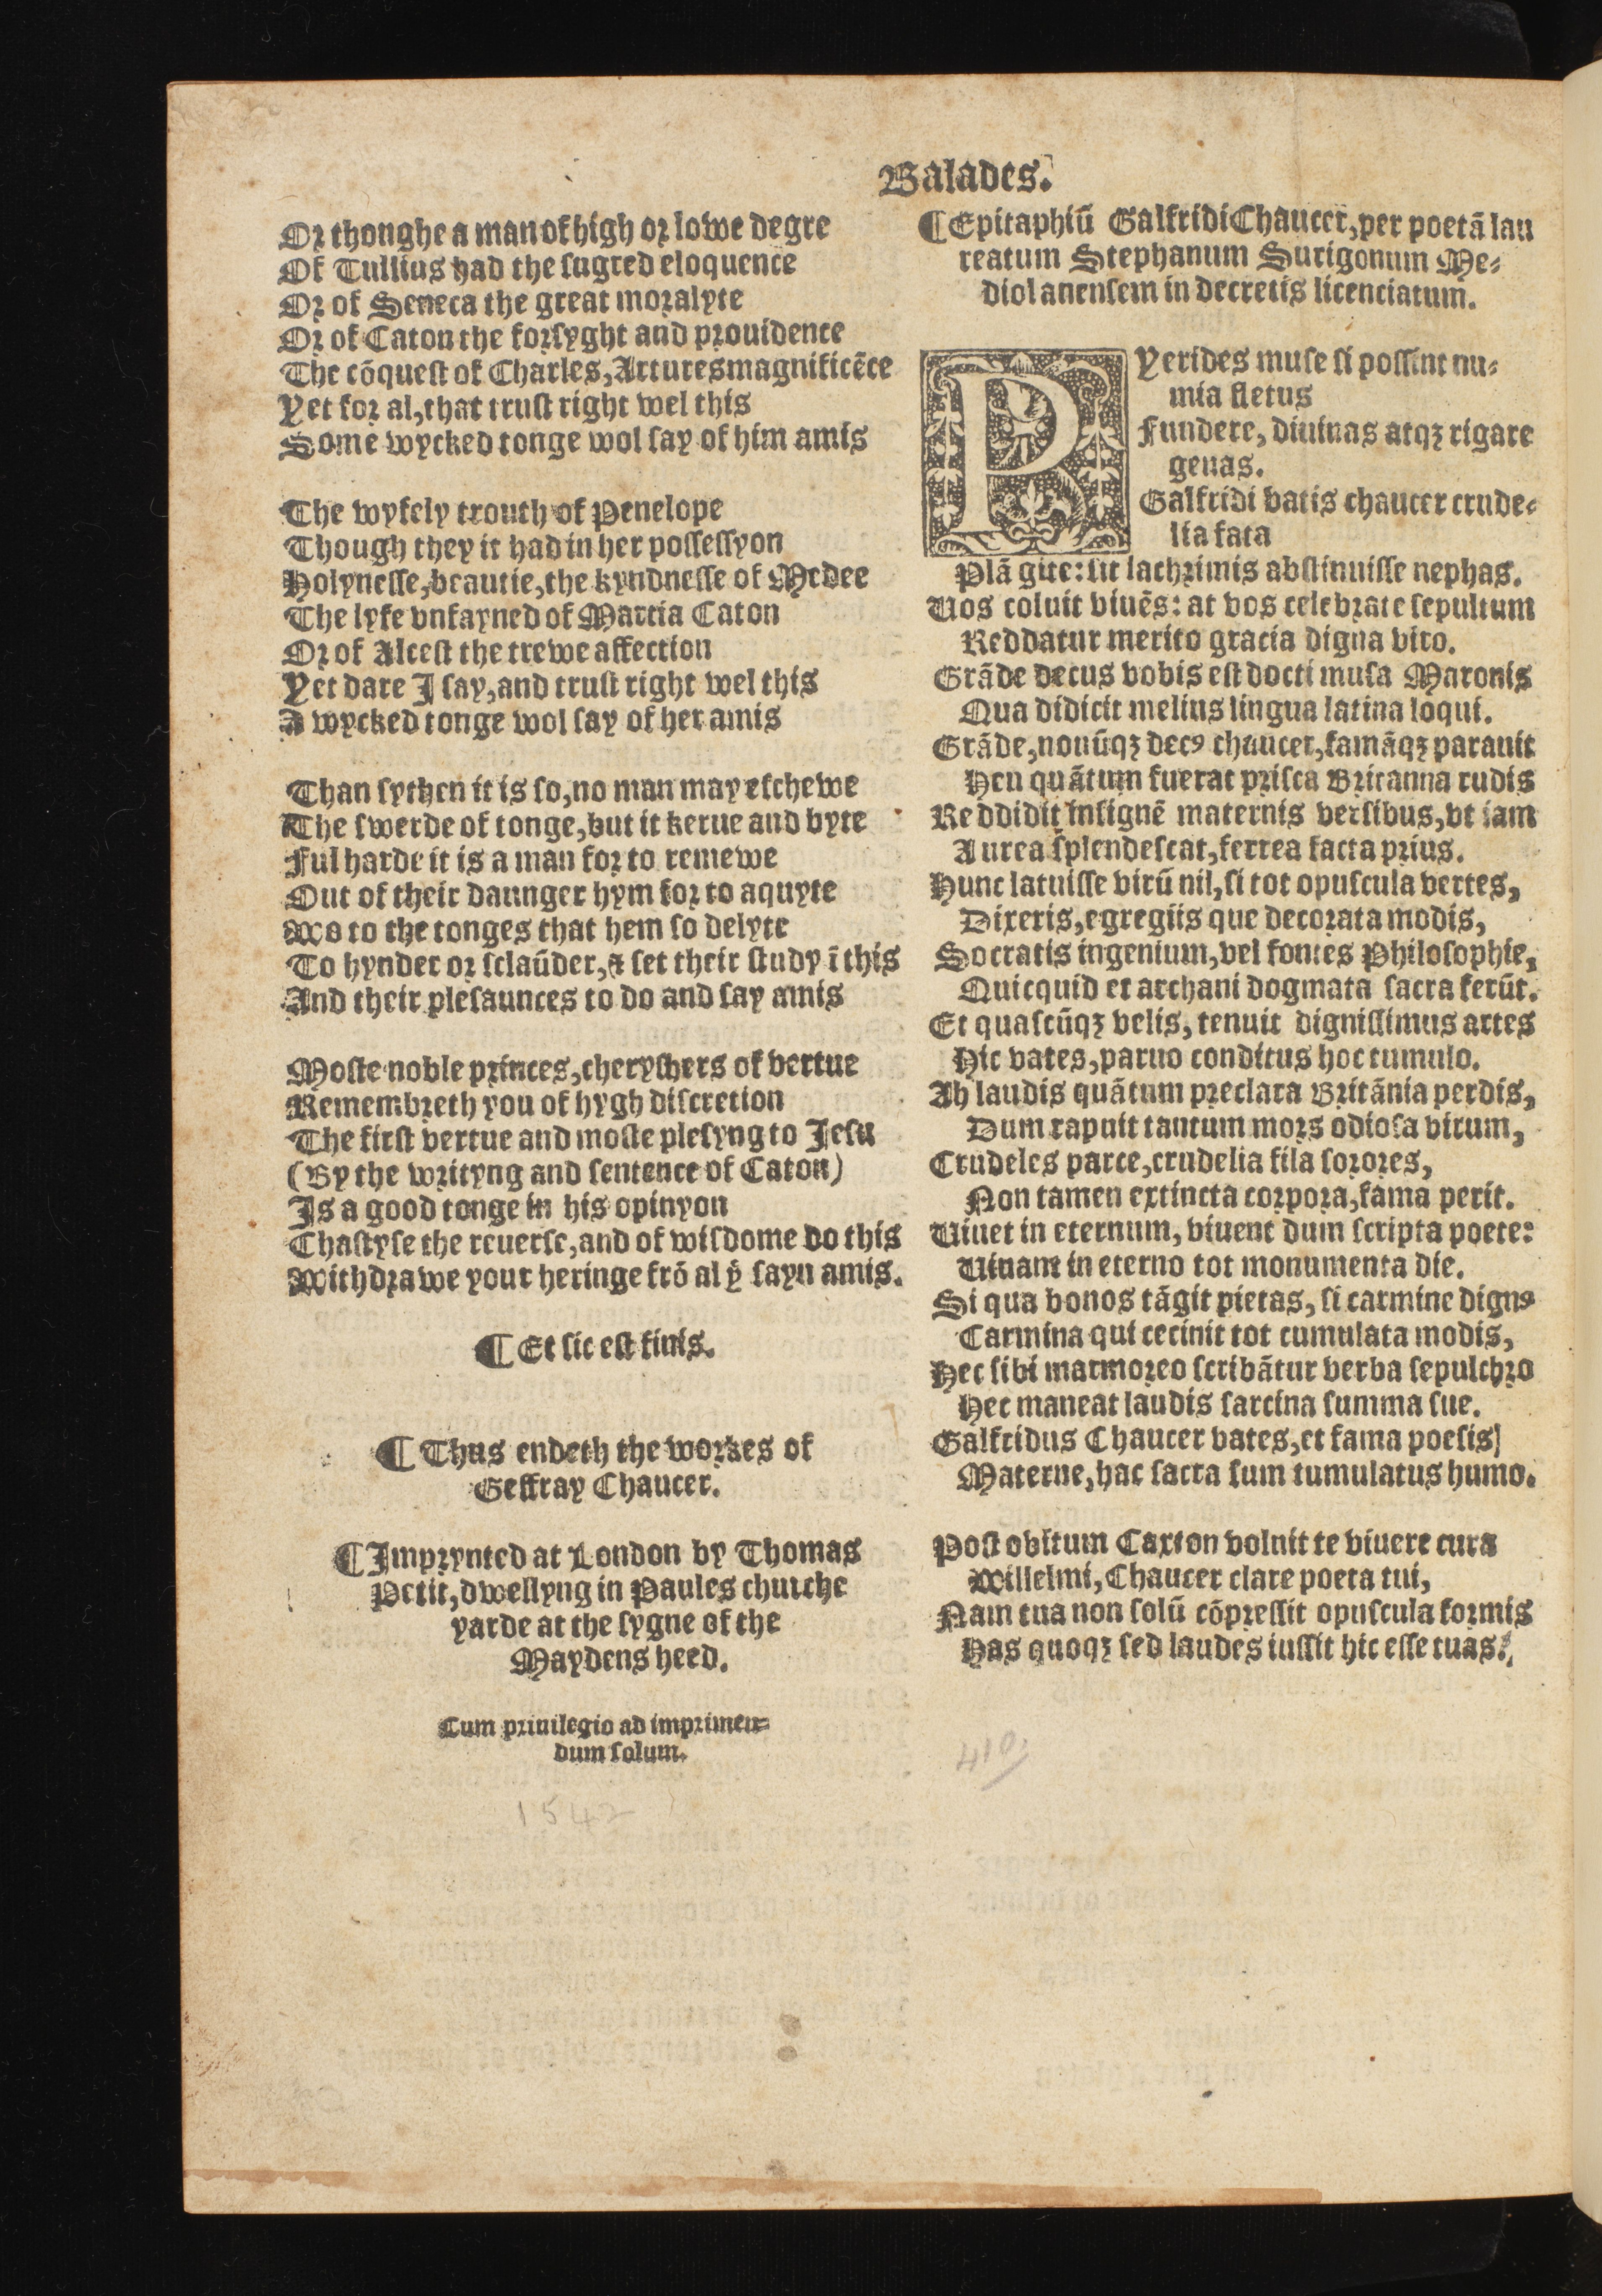 Balades.
Or thonghe a man of high or lowe degre
Of Tullius had the sugred eloquence
Or of Seneca the great moralyte
Or of Caton the forsyght and prouidence
The cōquest of Charles, Artures magnificēce
Yet for al, that trust right wel this
Some wycked tonge wol say of him amis
The wyfely trouth of Penelope
Though they it had in her possessyon
Holynesse, beautie, the kyndnesse of Medee
The lyfe vnfayned of Martia Caton
Or of Alcest the trewe affection
Yet dare I say, and trust right wel this
A wycked tonge wol say of her amis
Than sythen it is so, no man may eschewe
The swerde of tonge, but it kerue and byte
Ful harde it is a man for to remewe
Out of their daunger hym for to aquyte
Wo to the tonges that hem so delyte
To hynder or sclaūder, & set their study ī this
And their plesaunces to do and say amis
Moste noble princes, cheryshers of vertue
Remembreth you of hygh discretion
The first vertue and moste plesyng to Jesu
(By the writyng and sentence of Caton)
Is a good tonge in his opinyon
Chastyse the reuerse, and of wisdome do this
Withdrawe your heringe frō al yͭ sayn amis.
¶ Et sic est finis.
¶ Thus endeth the workes of
Geffray Chaucer.
¶ Imprynted at London by Thomas
Petit, dwellyng in Paules churche
yarde at the sygne of the
Maydens heed.
Cum priuilegio ad imprimen=
dum solum.
1542
¶ Epitaphiū Galfridi Chaucer, per poetā lau
reatum Stephanum Surigonum Me=
diolanensem in decretis licenciatum.
PYerides muse si possint nu=
mia fletus
Fundere, diuinas atqꝫ rigare
genas.
Galfridi vatis chaucer crude=
lia fata
Plā gite: sit lachrimis abstinuisse nephas.
Uos coluit viuēs: at vos celebrate sepultum
Reddatur merito gracia digna viro.
Grāde decus vobis est docti musa Maronis
Qua didicit melius lingua latina loqui.
Grāde, nouūqꝫ decꝰ chaucer, famāqꝫ parauit
Heu quātum fuerat prisca Britanna rudis
Reddidit insignē maternis versibus, vt iam
Aurea splendescat, ferrea facta prius.
Hunc latuisse virū nil, si tot opuscula vertes,
Dixeris, egregiis que decorata modis,
Socratis ingenium, vel fontes Philosophie,
Quicquid et archani dogmata sacra ferūt.
Et quascūqꝫ velis, tenuit dignissimus artes
Hic vates, paruo conditus hoc tumulo.
Ah laudis quātum preclara Britānia perdis,
Dum rapuit tantum mors odiosa virum,
Crudeles parce, crudelia fila sorores,
Non tamen extincta corpora, fama perit.
Uiuet in eternum, viuent dum scripta poete:
Uiuant in eterno tot monumenta die.
Si qua bonos tāgit pietas, si carmine dignꝰ
Carmina qui cecinit tot cumulata modis,
Hec sibi marmoreo scribātur verba sepulchro
Hec maneat laudis sarcina summa sue.
Galfridus Chaucer vates, et fama poesis)
Materne, hac sacra sum tumulatus humo.
Post obitum Caxton voluit te viuere cura
Willelmi, Chaucer clare poeta tui,
Nam tua non solū cōpressit opuscula formis
Has quoqꝫ sed laudes iussit hic esse tuas.
410